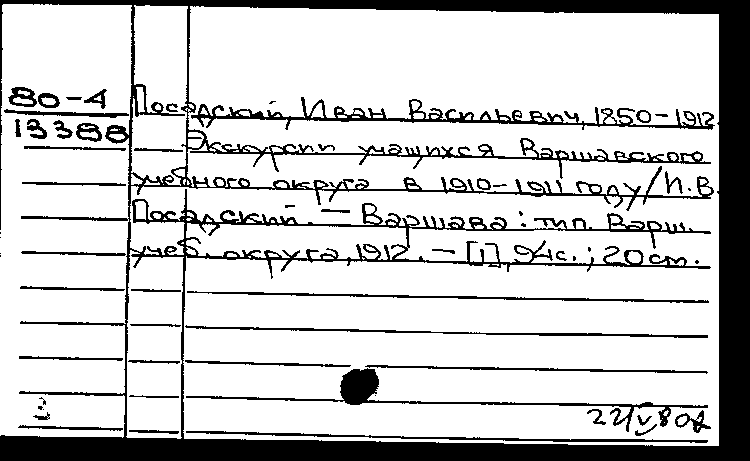 80-4
13388
Посадский, Иван Васильевич, 1850-1912.
Экскурсии учащихся Варшавского
учебного округа в 1910-1911 году / И.В.
Посадский. — Варшава : тип. Варш.
учеб. округа, 1912. — [1], 94 с. ; 20 см.
3